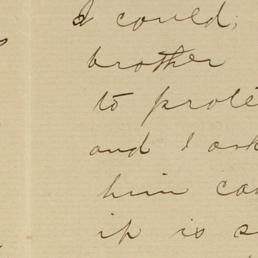 I could;
brother
to prote
and I ask
him ca
it is s